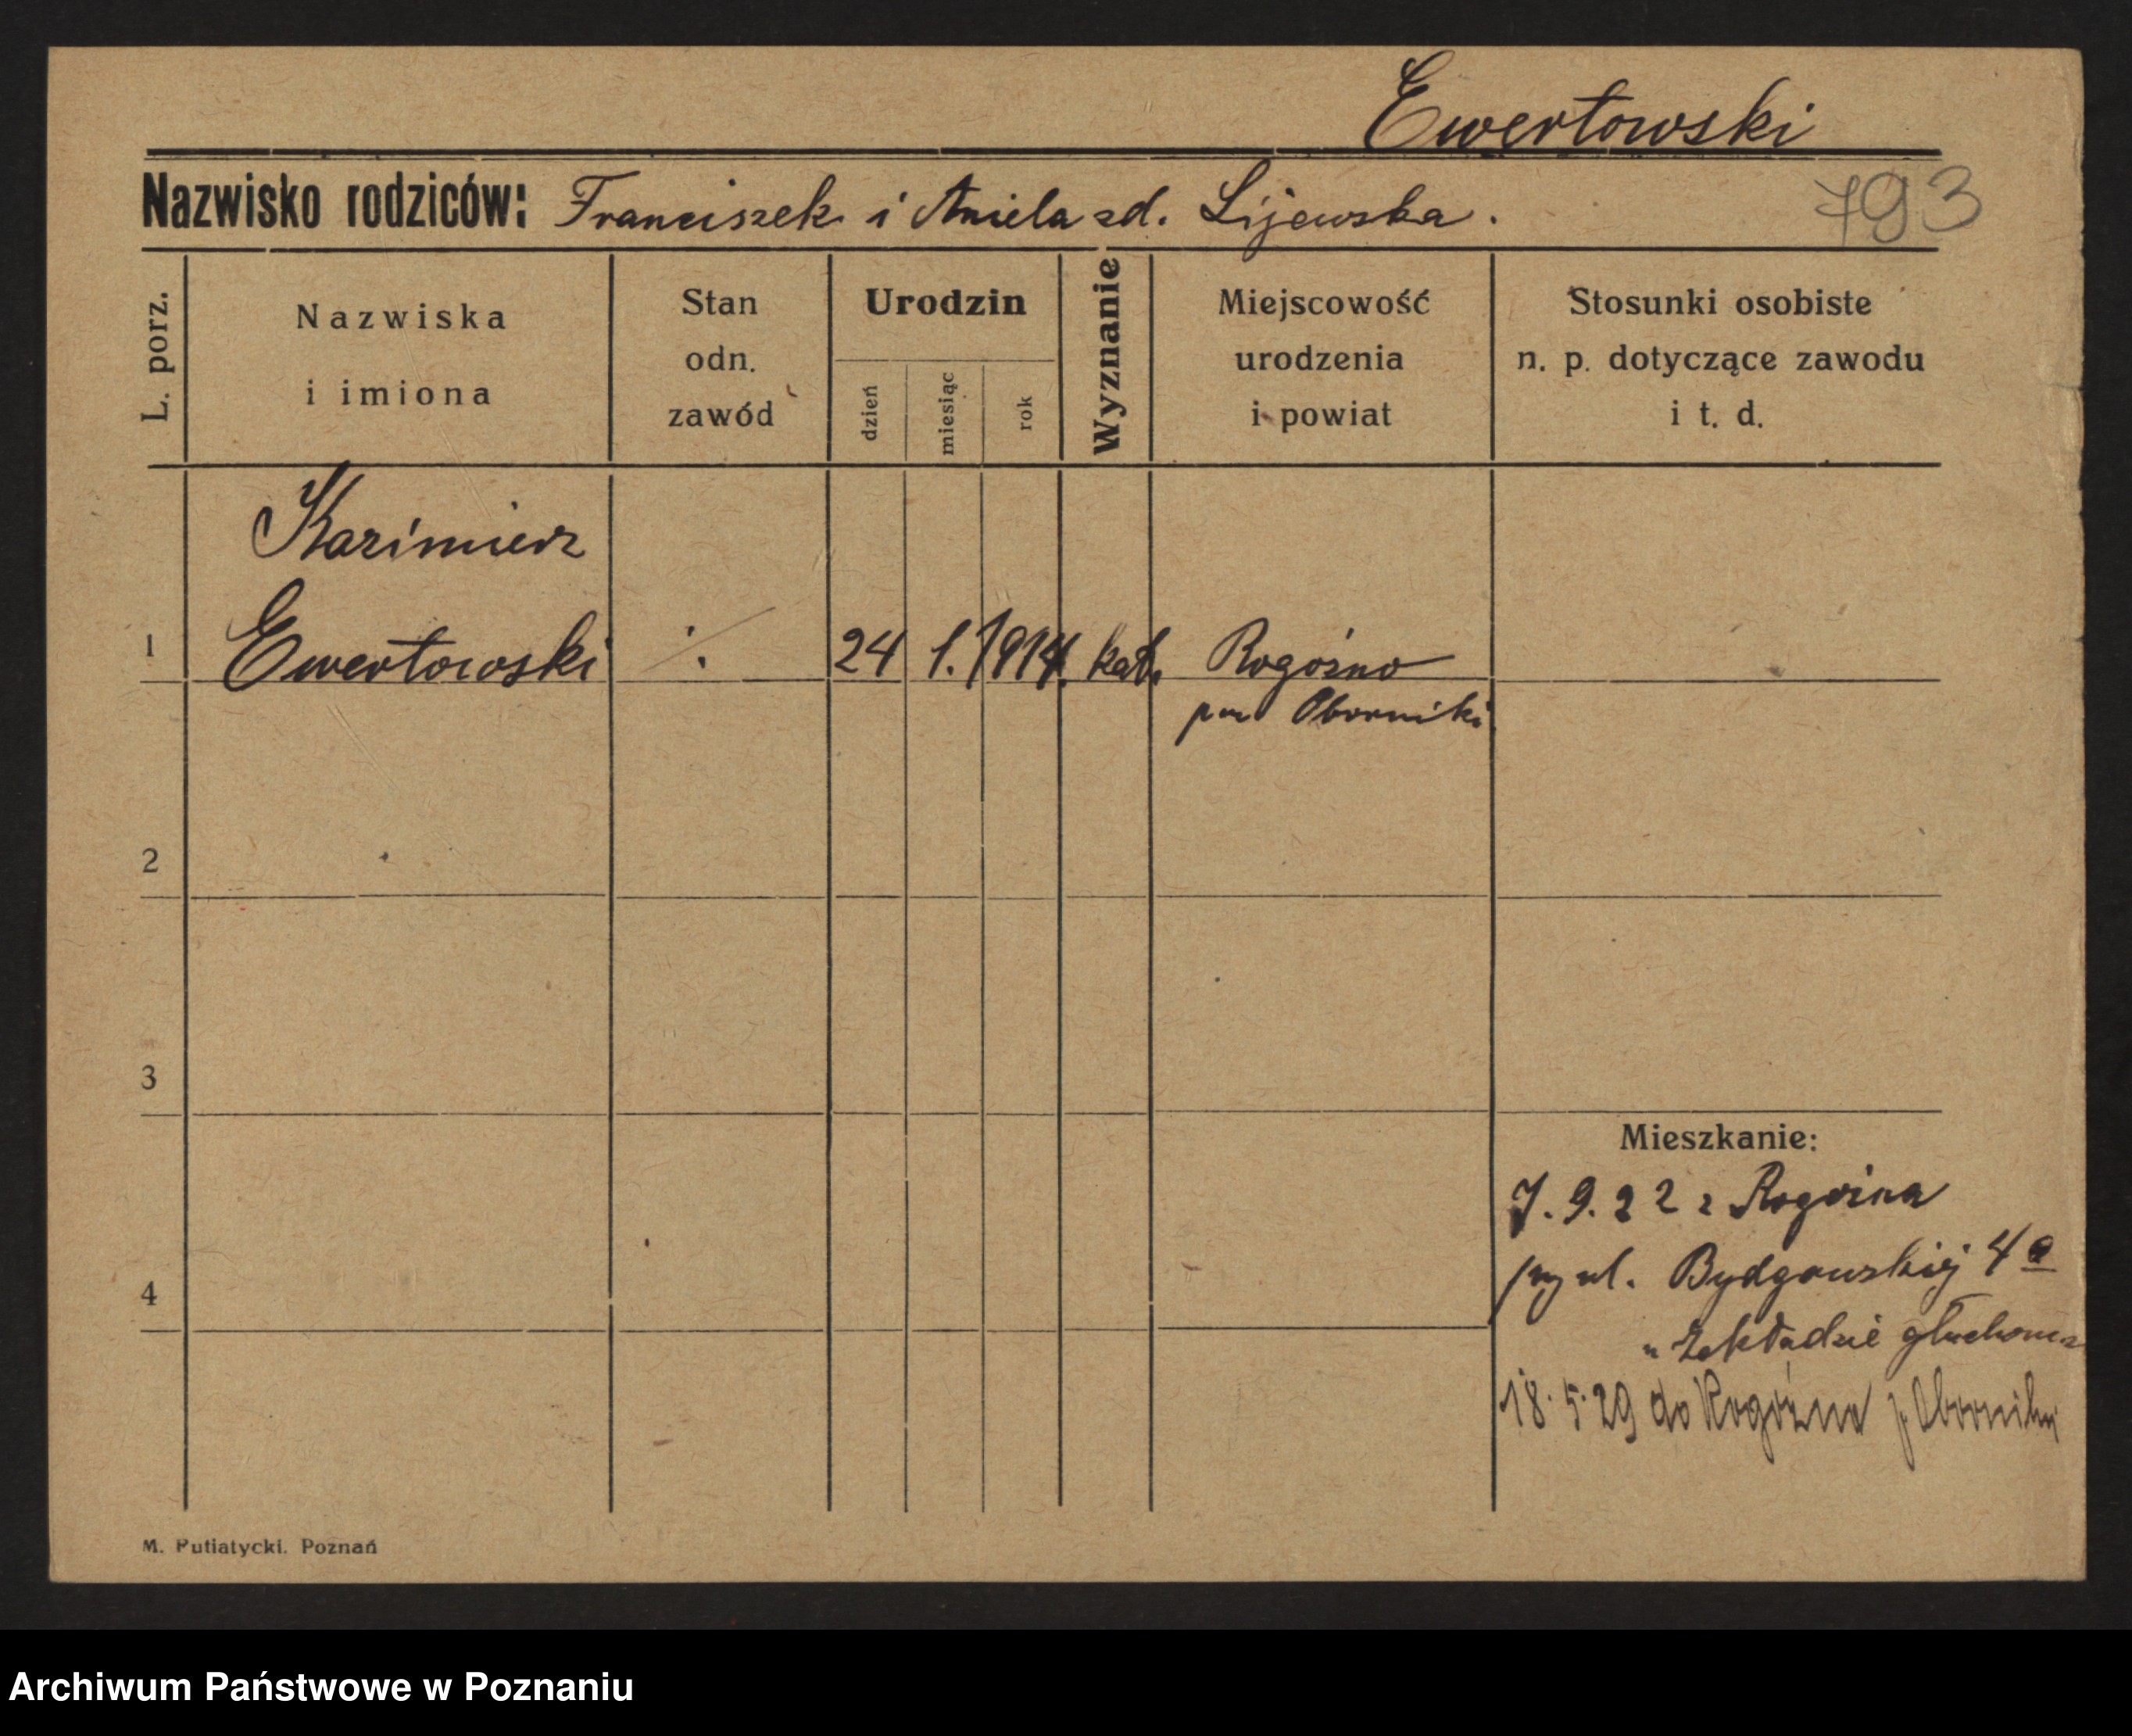 Ewertowski
Nazwisko rodziców: Franciszek i Aniela zd. Lijewska.
793
L. porz.
Nazwiska
i imiona
Stan
odn.
zawód
Urodzin
dzień
miesiąc
rok
Wyznanie
Miejscowość
urodzenia
i powiat
Stosunki osobiste
n. p. dotyczące zawodu
i t. d.
Kazimierz
1 Ewertowski ./. 24 1. 1914. kat. Rogoźno
pow Oborniki
2
3
Mieszkanie:
7.9.22 z Rogoźna
przy ul. Bydgowskiej 4a
4
w Zakładzie głuchoni
18.5.29 do Rogoźna p. Oborniky
M. Putiatycki. Poznań
Archiwum Państwowe w Poznaniu